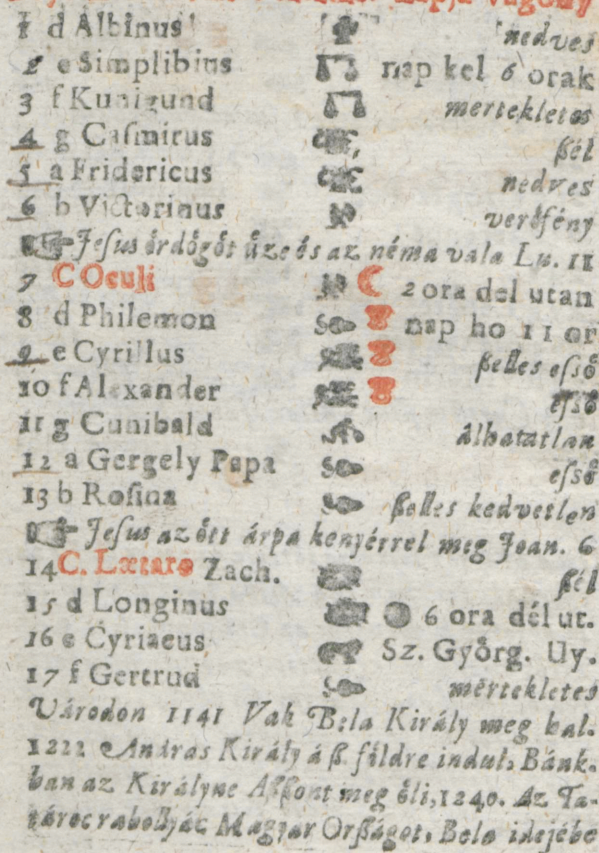 1 d Albinus nedves
2 e Simplibius nap kel 6 orak
3 f Kunigund mertekletes
4 g Casmirus ßél
5 a Fridericus nedves
6 b Victorinus verőfény
Jesus ördögöt űze és az néma vala Lu. 11
7 C Oculi 2 ora del utan
8 d Philemon nap ho 11 or
9 e Cyrillus ßelles esső
10 f Alexander esső
11 g Cunibald álhatatlan
12 a Gergely Papa esső
13 b Rosina ßelles kedvetlen
Jesus az ött árpa kenyérrel meg Joan. 6
14 C. Lætare Zach. ßél
15 d Longinus 6 ora dél ut.
16 e Cyriaeus Sz. Györg. Uy.
17 f Gertrud mértekletes
Várodon 1141 Vak Bela Király meg hal.
1222 András Király á ß. földre indul, Bánk-
ban az Királyne Aßßont meg öli, 1240. Az Ta-
tároc rabollyác Magyar Orßágot, Bela idejébe